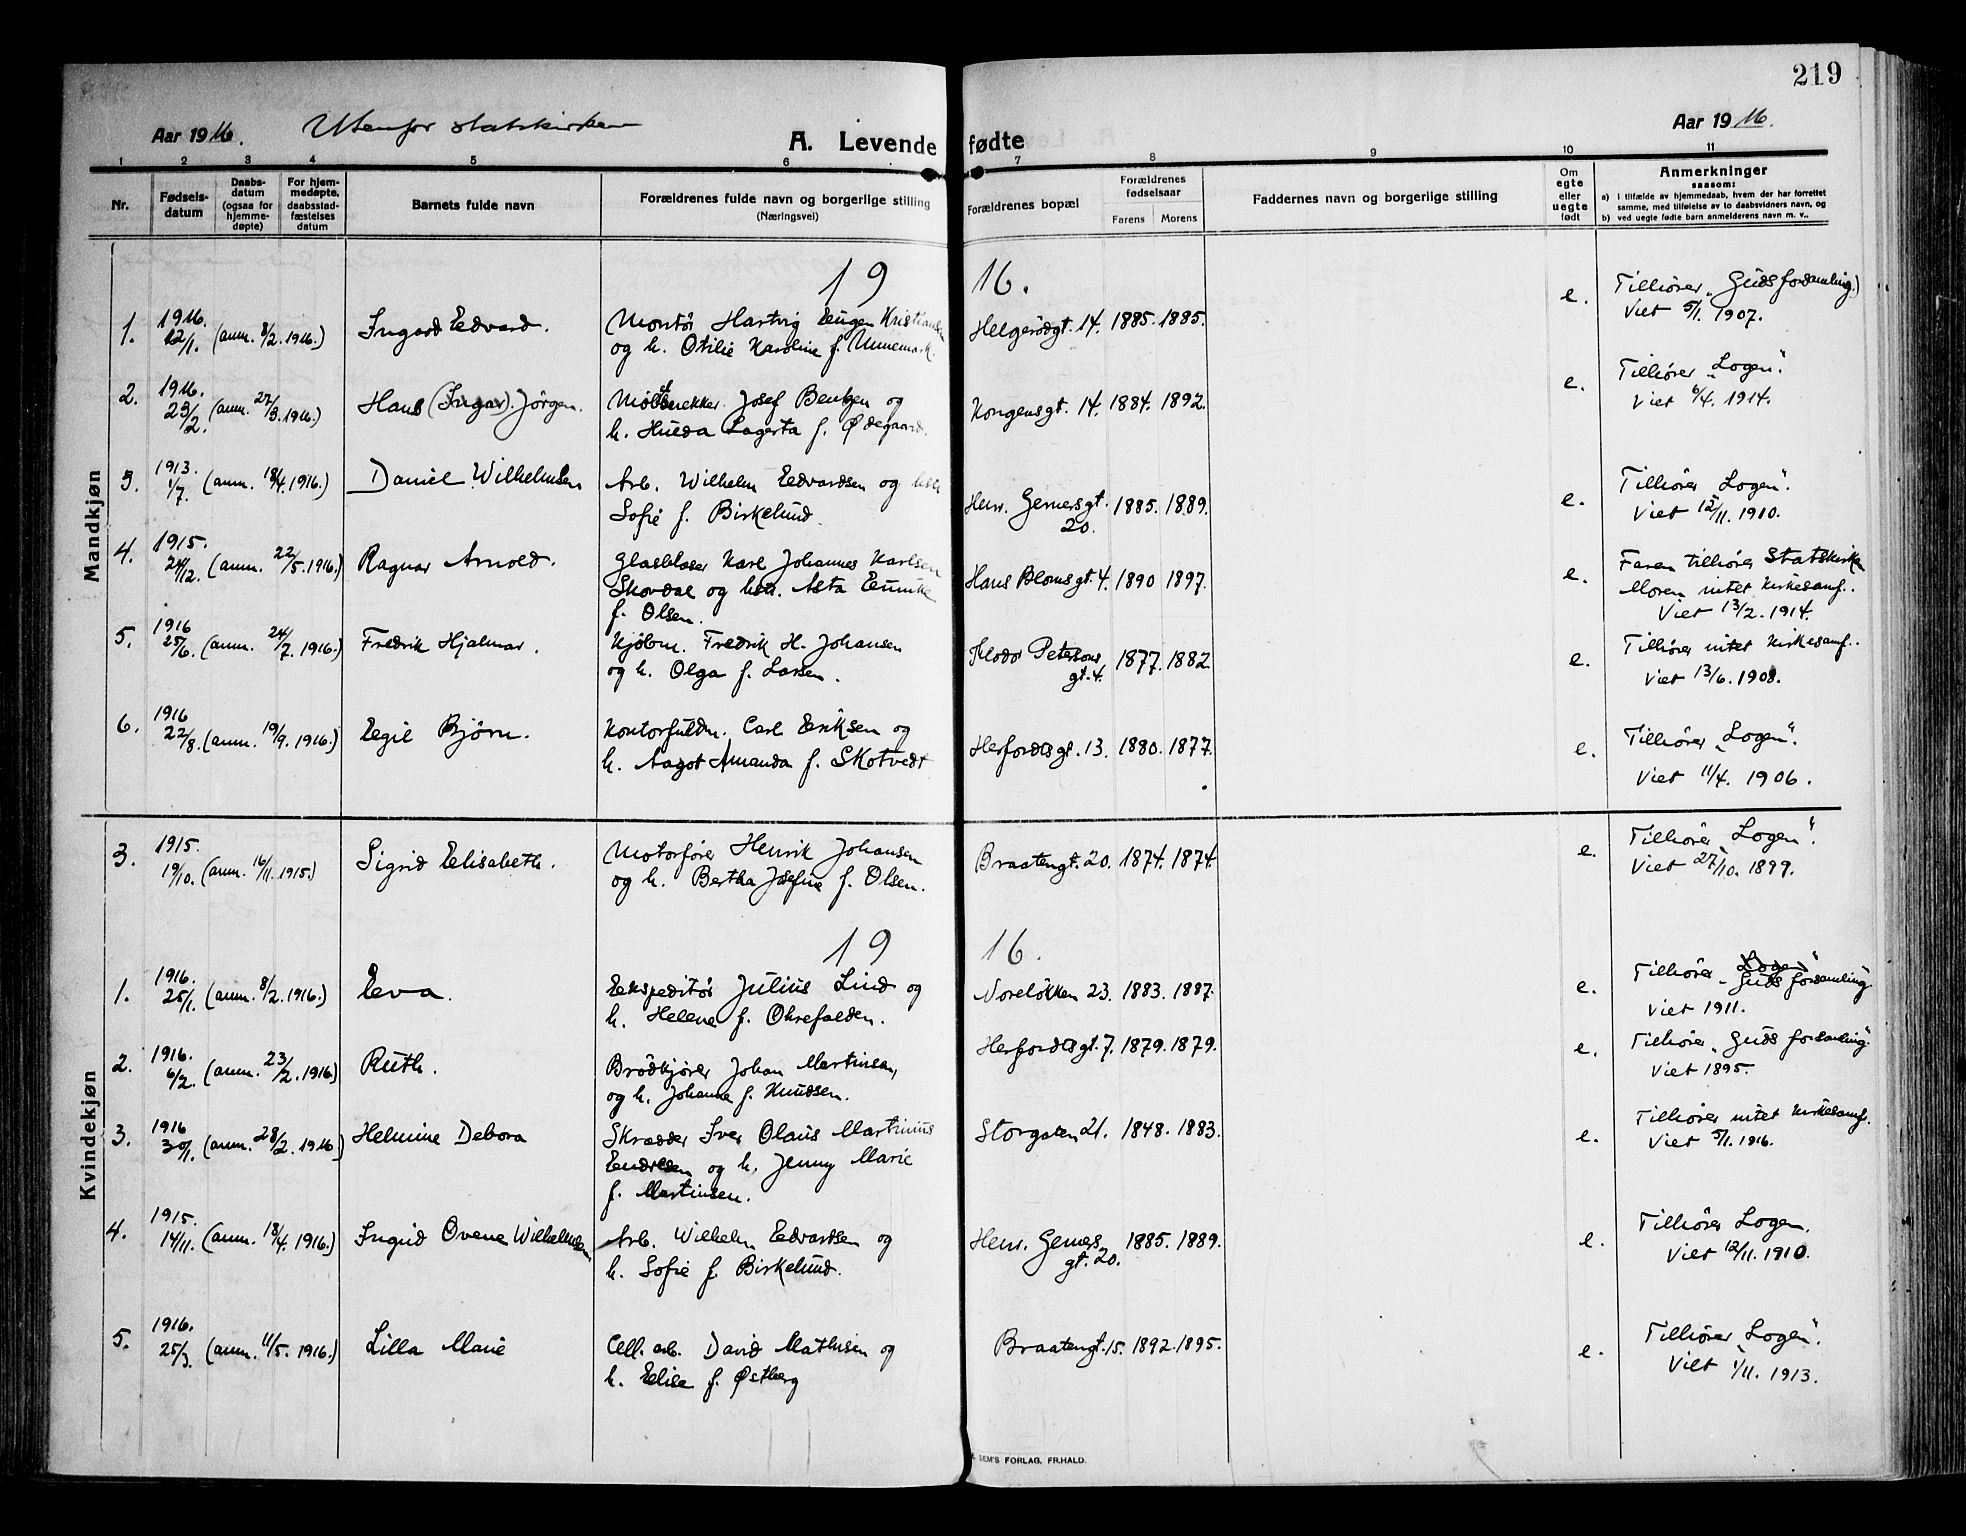 219
Aar 1916. Utenfor statskirken A. Levende fødte Aar 1916.
1 2 3 4 5 6 7 8 9 10 11
Nr.
Fødsels-
datum
Daabs-
datum
(ogsaa for
hjemme-
døpte)
For hjem-
medøpte,
daabsstad-
fæstelses
datum
Barnets fulde navn
Forældrenes fulde navn og borgerlige stilling
(Næringsvei)
Forældrenes bopæl
Forældrenes
fødselsaar
Farens Morens
Faddernes navn og borgerlige stilling
Om
egte
eller
uegte
født
Anmerkninger
saasom:
a) i tilfælde av hjemmedaab, hvem der har forrettet
samme, med tilføielse av to daabsvidners navn, og
b) ved uegte fødte barn anmelderens navn m. v..
Mandkjøn
19 16.
1. 1916. 12/1. (anm. 8/2. 1916.) Ingard Edvard. Montør Hartvig Eugen Kristiansen Helgerödgt. 14. 1885. 1885. e. Tilhører „Guds forsamling.)
og h. Otilie Karoline f. Unnemark. Viet 5/1. 1907.
2. 1916. 23/2. (anm. 27/3. 1916.) Hans (Ingar). Jörgen. Josef Bentzen og Kongensgt. 14. 1884. 1892. e. Tilhører „Logen“.
h. Hulda Lagerta f. Ødegaard. Viet 6/4. 1914.
3. 1913. 1/7. (anm. 18/4. 1916.) Daniel Wilhelmsen Arb. Wilhelm Edvardsen og Henr. Gernersgt. 1885. 1889. e. Tilhører „Logen“.
Sofie f. Birkelund. 20. Viet 12/11. 1910.
4. 1915. 24/12. (anm. 22/5. 1916.) Ragnar Arnold. Glasblaser Karl Johannes Karlsen Hans Blomsgt. 4. 1890 1897. e. Faren tilhører Statskirke
Skovdal og hstr. Asta Eunike Moren intet kirkesamf..
f. Olsen. Viet 13/2. 1914.
5. 1916 25/6. (anm. 24/7. 1916.) Fredrik Hjalmar. Kjøbm. Fredrik H. Johansen Theodor Petersons 1877. 1882. e. Tilhører intet kirkesamf..
og h. Olga f. Larsen. gt. 4. Viet 13/6. 1908.
6. 1916 22/8. (anm. 19/9. 1916.) Egil Bjørn. Kontorfuldm. Carl Eriksen og Herfordtsgt. 13. 1880. 1877. e. Tilhører „Logen“.
h. Aagot Amanda f. Skotvedt Viet 11/4. 1906.
Kvindekjøn
3. 1915. 19/10. (anm. 16/11. 1915.) Sigrid Elisabeth. Motorfører Henrik Johansen Braatengt. 20. 1874. 1874. e. Tilhører „Logen“.
og h. Bertha Josefine f. Olsen. Viet 27/10. 1899.
19 16.
1. 1916. 25/1. (anm. 8/2. 1916.) Eva. Ekspeditör Julius Lind og Noreløkken 23. 1883. 1887. e. Tilhører „Logen“ Guds forsamling
h. Helene f. Okrefalden. Viet 1911.
2. 1916. 6/2. (anm. 23/2. 1916) Ruth. Brödkjører Johan Martinsen, Herfordtsgt. 7. 1879. 1879. e. Tilhører „Guds forsamling“.
og h. Johanne f. Knudsen. Viet 1895.
3. 1916 30/1. (anm. 28/2. 1916 Helmine Debora Skrædder Iver Olaus Martinius Storgaten 21. 1848. 1883. e. Tilhører intet kirkesamf.
Endresen og h. Jenny Marie Viet 5/1. 1916.
f. Martinsen.
4. 1915. 14/11. (anm. 18/4. 1916.) Ingrid Ovene Wilhelmsen Arb. Wilhelm Edvardsen og Henr. Gerners 1885. 1889. e. Tilhører Logen.
h. Sofie f. Birkelund. gt. 20. Viet 12/11. 1910.
5. 1916. 25/3. (anm. 11/5. 1916.) Lilla Marie Cell. arb. David Mathisen og Braatengt. 15. 1892. 1895. e. Tilhører „Logen“.
h. Elise f. Østberg Viet 1/11. 1913.
SEM'S FORLAG, FR.HALD.